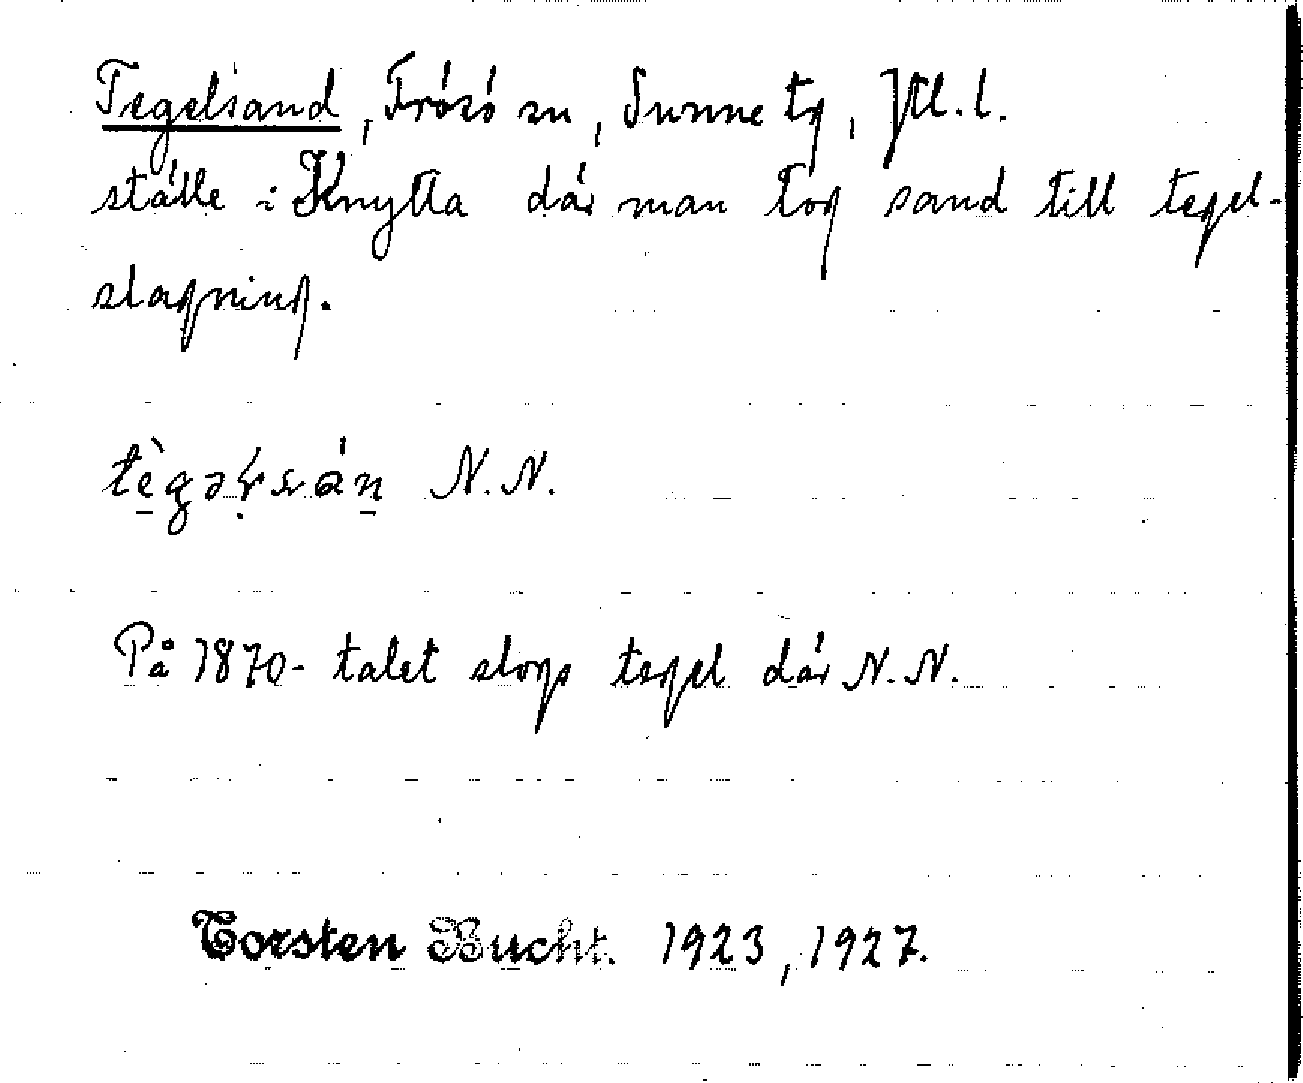 Tegelsand, Frösö sn, Sunne tg, Jtl. l.
ställe i Knytta där man tog sand till tegel-
slagning.
tègəṛsán N.N.
På 1870-talet slogs tegel där N.N.
Torsten Bucht. 1923, 1927.